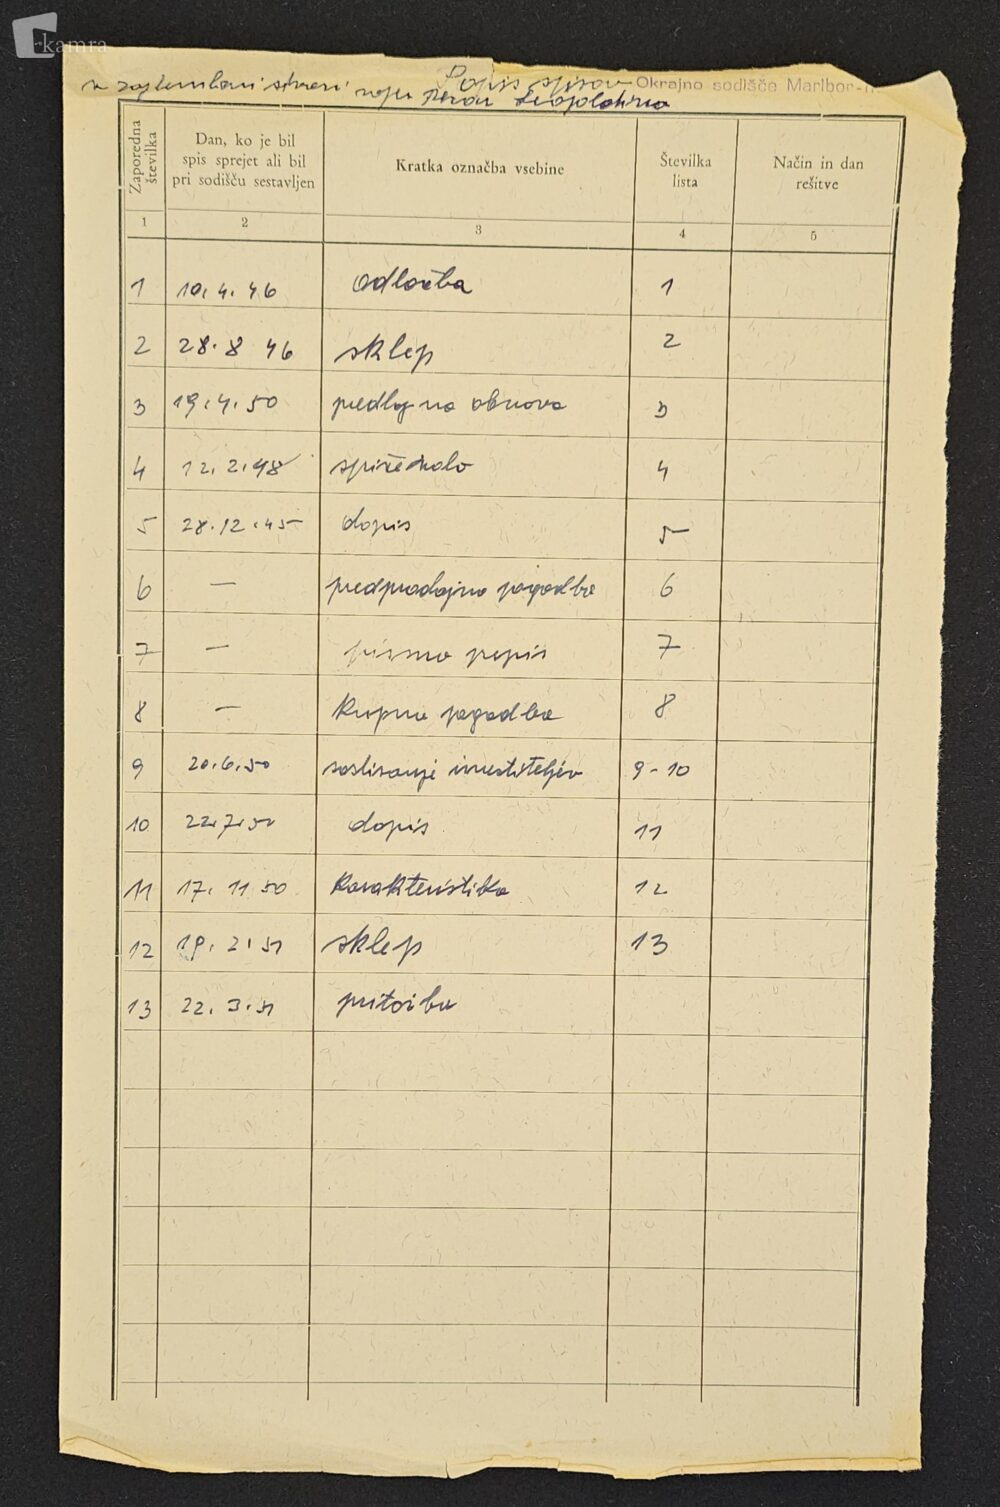 kamra
Popis spisov Okrajno sodišče Maribor
v zaplembeni stvari
Zaporedna številka
Dan, ko je bil
spis sprejet ali bil
pri sodišču sestavljen
Kratka označba vsebine
Številka
lista
Način in dan
rešitve
1 2 3 4 5
1 10. 4. 46 odločba 1
2 28. 8 46 sklep 2
3 19. 4. 50 predlog na obnovo 3
4 12. 2. 48 4
5 28. 12. 45 dopis 5
6 — predprodajna pogodba 6
7 — popis 7
8 — Kupna pogodba 8
9 20. 6. 50 9-10
10 22. 7. 50 dopis 11
11 17. 11 50 Karakteristika 12
12 19. 2. 51 sklep 13
13 22. 3. 51 pritožba